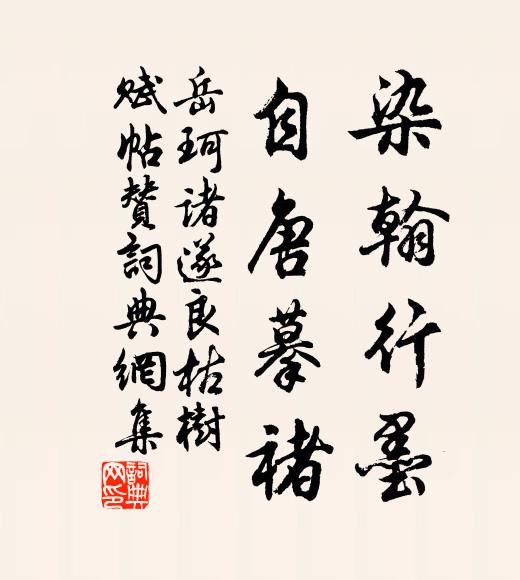 染翰行墨
自唐摹褚
岳珂諸遂良枯樹
賦帖贊詞典網集
詞典
网印